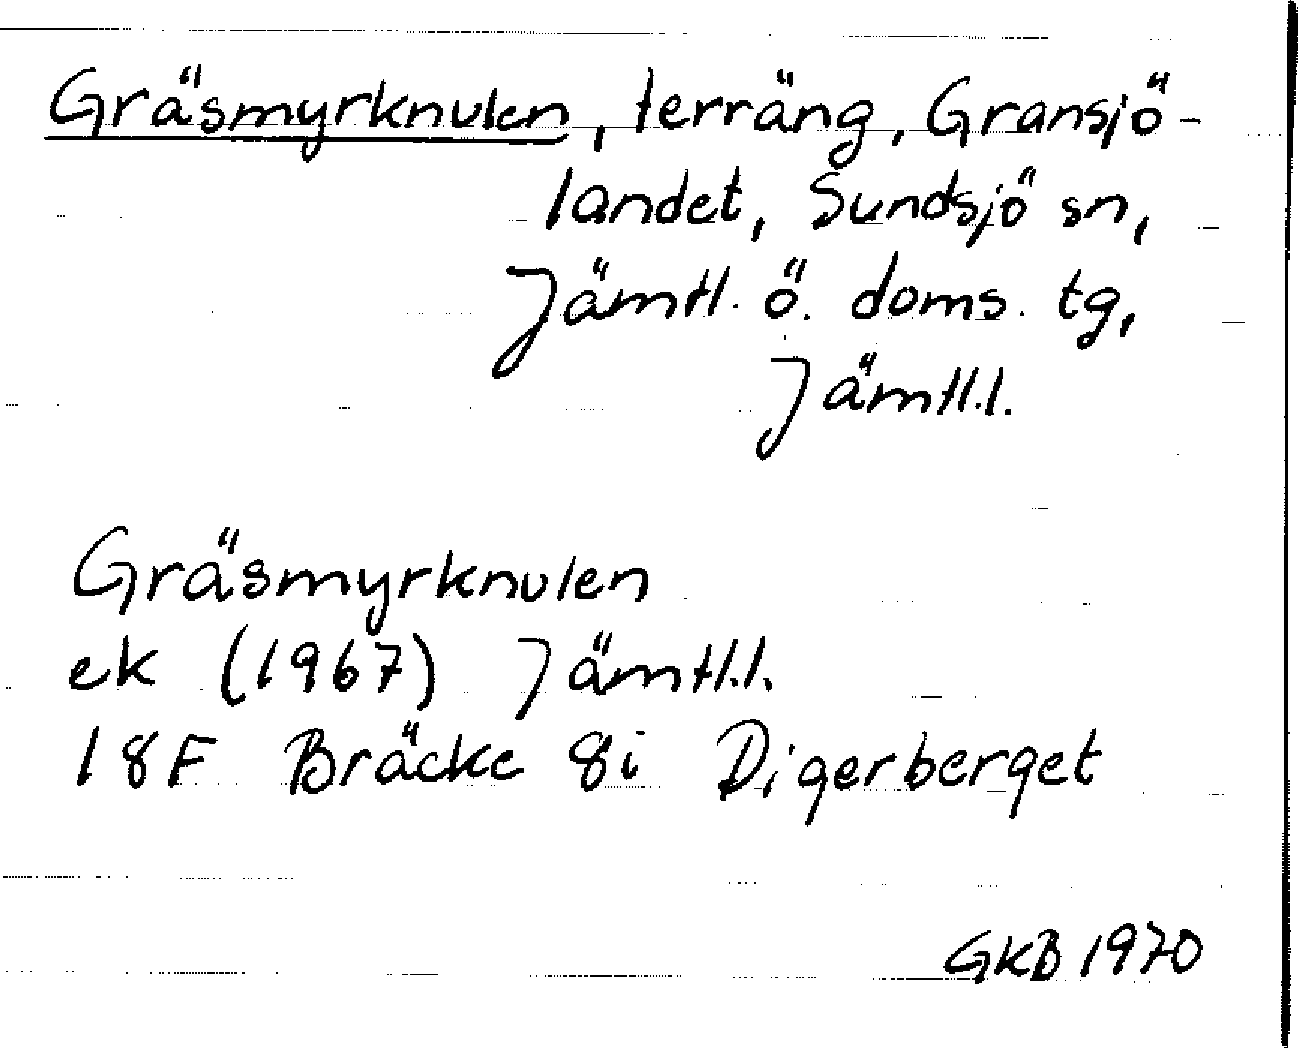 Gräsmyrknulen, terräng, Gransjö-
landet, Sundsjö sn,
Jämtl. ö. doms. tg,
Jämtl.l.
Gräsmyrknulen
ek (1967) Jämtl.l.
18F Bräcke 8i Digerberget
GKB 1970